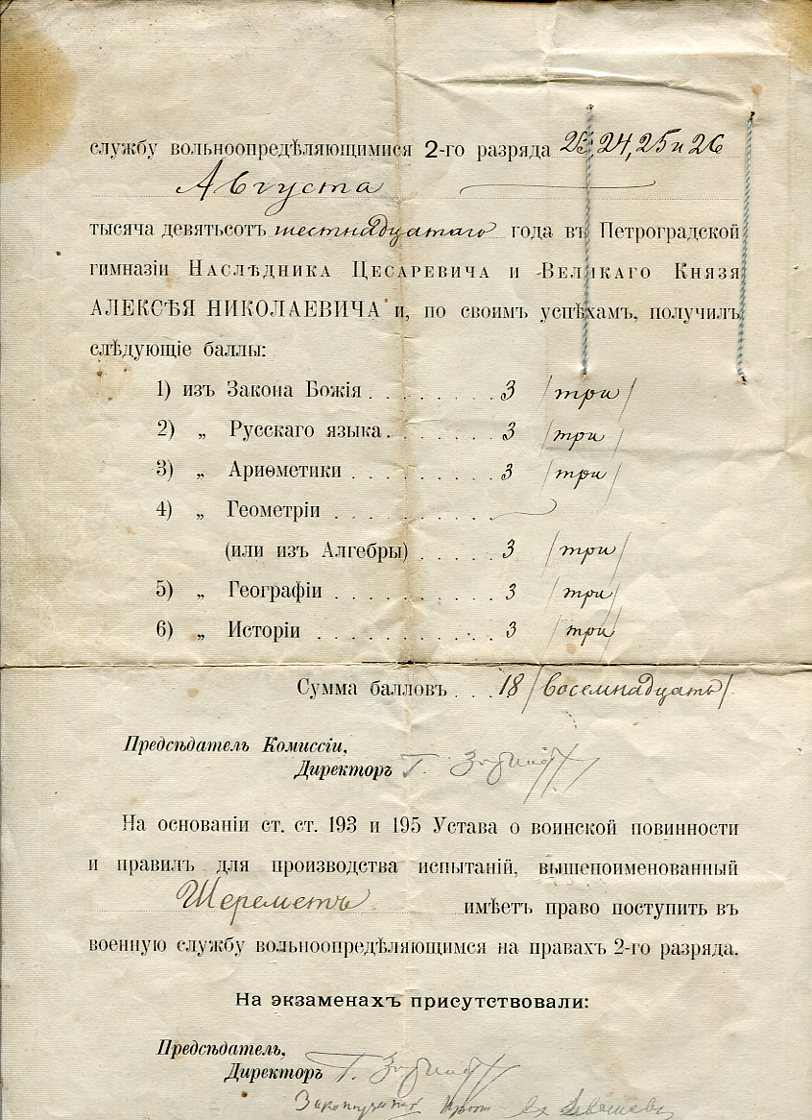 службу вольноопредѣляющимися 2-го разряда 23, 24, 25 и 26
Августа
тысяча девятьсотъ шестнадцатаго года въ Петроградской
гимназіи Наслѣдника Цесаревича и Великаго Князя
АЛЕКСѢЯ НИКОЛАЕВИЧА и, по своимъ успѣхамъ, получилъ
слѣдующіе баллы:
1) изъ Закона Божія . . . . . . . . . 3 /три/
2) „ Русскаго языка . . . . . . . . 3 /три/
3) „ Ариѳметики . . . . . . . . . . 3 /три/
4) „ Геометріи . . . . . . . . . .
(или изъ Алгебры) . . . . . 3 /три/
5) „ Географіи . . . . . . . . . . 3 /три/
6) „ Исторіи . . . . . . . . . . . 3 /три/
Сумма балловъ . . . 18 /восемнадцать/.
Предсѣдатель Комиссіи,
Директоръ Г.
На основаніи ст. ст. 193 и 195 Устава о воинской повинности
и правилъ для производства испытаній, вышепоименованный
Шереметъ имѣетъ право поступить въ
военную службу вольноопредѣляющимся на правахъ 2-го разряда.
На экзаменахъ присутствовали:
Предсѣдатель,
Директоръ Г.